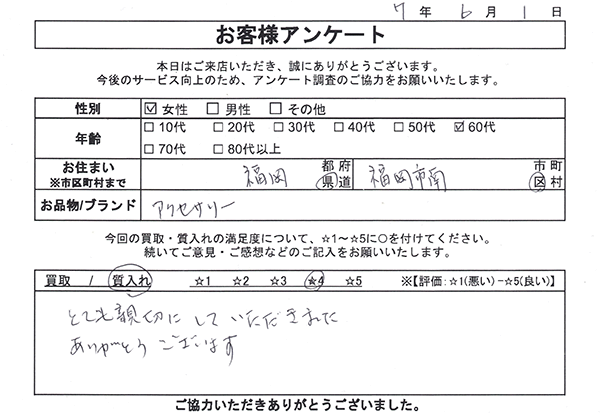 7 年 6 月 1 日
お客様アンケート
本日はご来店いただき、誠にありがとうございます。
今後のサービス向上のため、アンケート調査のご協力をお願いいたします。
性別 ☑ 女性 □ 男性 □ その他
年齢 □ 10代 □ 20代 □ 30代 □ 40代 □ 50代 ☑ 60代
□ 70代 □ 80代以上
お住まい ※市区町村まで 福岡 都府県道 福岡市南 市町区村
お品物/ブランド アクセサリー
今回の買取・質入れの満足度について、☆1～☆5に○を付けてください。
続いてご意見・ご感想などのご記入をお願いいたします。
買取 / 質入れ ☆1 ☆2 ☆3 ☆4 ☆5 ※【評価:☆1(悪い)－☆5(良い)】
とても親切にしていただきました
ありがとうございます
ご協力いただきありがとうございました。